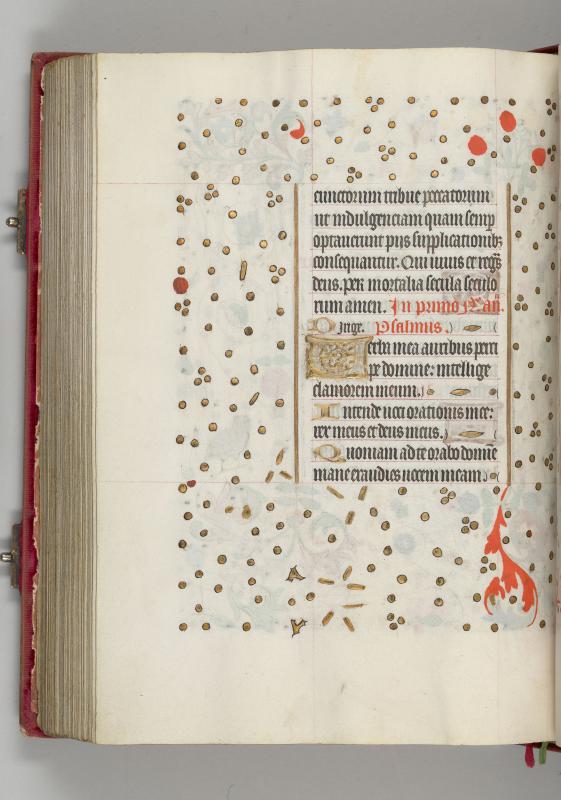 cunctorum tribue peccatorum
ut indulgenciam quam semp
optauerunt pijs supplicationib;
consequantur. Qui uiuis et regs
deus. per mortalia secula seculo
rum amen. In primo
Dirige. Psalmus.
Verba mea auribus perci
pe domine: intellige
clamorem meum.
Intende uoci orationis mee:
rex meus et deus meus.
Quoniam ad te orabo domine
mane exaudies uocem meam.